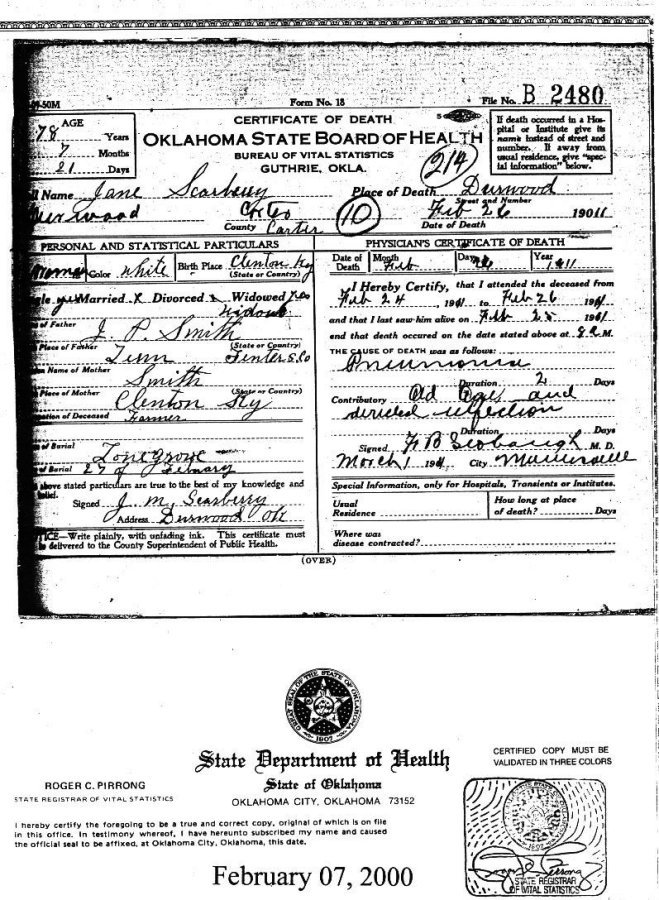 -50M
Form No. 18
File No. B 2480
CERTIFICATE OF DEATH
OKLAHOMA STATE BOARD OF HEALTH
BUREAU OF VITAL STATISTICS
GUTHRIE, OKLA.
AGE
78 Years
7 Months
21 Days
5
214
If death occurred in a Hos-
pital or Institute give its
name instead of street and
number. If away from
usual residence, give "spec-
ial information" below.
Name Jane Scarberry Place of Death Durwood
Street and Number
10 Feb 26 1911
County Carter Date of Death
PERSONAL AND STATISTICAL PARTICULARS
Color White Birth Place Clenton Ky
(State or Country)
Married X Divorced X Widowed Yes
Widow
of Father J. P. Smith
Place of Father Tenn (State or Country)
Name of Mother Smith
Place of Mother Clenton Ky (State or Country)
of Deceased Farmer
of Burial Lonegrove
of Burial 27 of Febuary
above stated particulars are true to the best of my knowledge and
belief.
Signed J. M. Scarberry
Address Durwood Ok
NOTICE—Write plainly, with unfading ink. This certificate must
be delivered to the County Superintendent of Public Health.
PHYSICIAN'S CERTIFICATE OF DEATH
Date of Death Month Feb Day 26 Year 1911
I Hereby Certify, that I attended the deceased from
Feb 24, 1911 to Feb 26 1911
and that I last saw him alive on Feb 25 1911
and that death occured on the date stated above at 8 A. M.
THE CAUSE OF DEATH was as follows:
Pneumonia
Duration 2 Days
Contributory Old Age and
Duration Days
Signed M. D.
March 1 1911 City
Special Information, only for Hospitals, Transients or Institutes.
Usual
Residence
How long at place
of death? Days
Where was
disease contracted?
(OVER)
GREAT SEAL OF THE STATE OF OKLAHOMA
1907
State Department of Health
State of Oklahoma
OKLAHOMA CITY, OKLAHOMA 73152
ROGER C. PIRRONG
STATE REGISTRAR OF VITAL STATISTICS
CERTIFIED COPY MUST BE
VALIDATED IN THREE COLORS
I hereby certify the foregoing to be a true and correct copy, original of which is on file
in this office. In testimony whereof, I have hereunto subscribed my name and caused
the official seal to be affixed, at Oklahoma City, Oklahoma, this date.
February 07, 2000
STATE REGISTRAR
OF VITAL STATISTICS